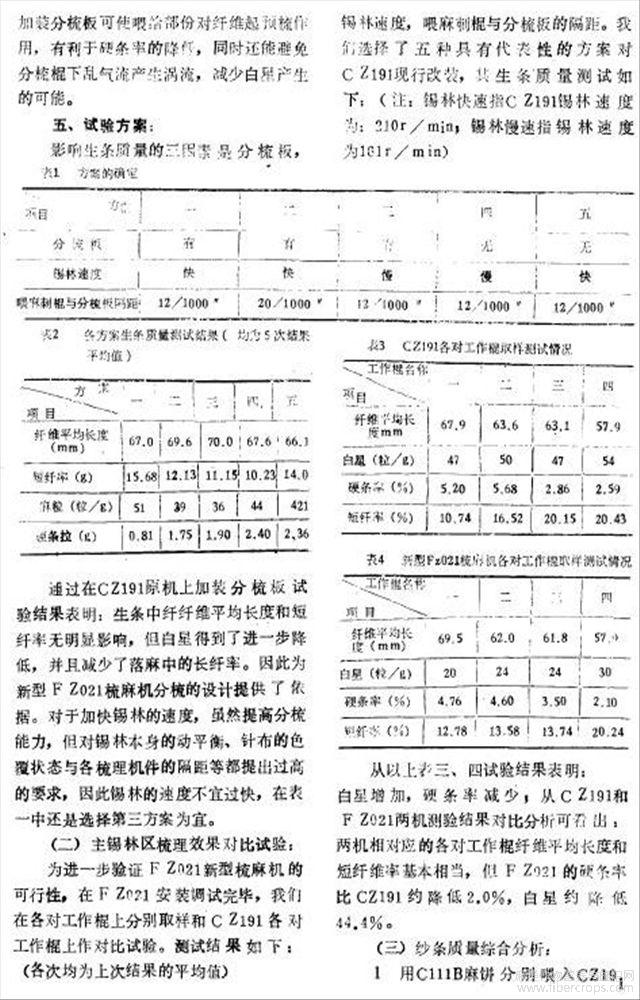 加装分梳板可使喂给部份对纤维起预梳作
用，有利于硬条率的降低，同时还能避免
分梳棍下乱气流产生涡流，减少白星产生
的可能。
五、试验方案：
影响生条质量的三因素是分梳板，
锡林速度，喂麻刺棍与分梳板的隔距。我
们选择了五种具有代表性的方案对
CZ191现行改装，其生条质量测试如
下：（注：锡林快速指CZ191锡林速度
为：210r／min，锡林慢速指锡林速度
为181r／min）
表1 方案的确定
项目 方案 一 二 三 四 五
分梳板 有 有 有 无 无
锡林速度 快 快 慢 慢 快
喂麻刺棍与分梳板隔距 12/1000″ 20/1000″ 12/1000″ 12/1000″ 12/1000″
表2 各方案生条质量测试结果（均为5次结果
平均值）
项目 方案 一 二 三 四 五
纤维平均长度
（mm） 67.0 69.6 70.0 67.6 66.1
短纤率（g） 15.68 12.13 11.15 10.23 14.0
麻粒（粒/g） 51 39 36 44 421
硬条拉（g） 0.81 1.75 1.90 2.40 2.36
通过在CZ191原机上加装分梳板试
验结果表明：生条中纤纤维平均长度和短
纤率无明显影响，但白星得到了进一步降
低，并且减少了落麻中的长纤率。因此为
新型FZ021梳麻机分梳的设计提供了依
据。对于加快锡林的速度，虽然提高分梳
能力，但对锡林本身的动平衡、针布的包
覆状态与各梳理机件的隔距等都提出过高
的要求，因此锡林的速度不宜过快，在表
一中还是选择第三方案为宜。
（二）主锡林区梳理效果对比试验：
为进一步验证FZ021新型梳麻机的
可行性，在FZ021安装调试完毕，我们
在各对工作棍上分别取样和CZ191各对
工作棍上作对比试验。测试结果如下：
（各次均为上次结果的平均值）
表3 CZ191各对工作棍取样测试情况
项目 工作棍名称 一 二 三 四
纤维平均长
度mm 67.9 63.6 63.1 57.9
白星（粒/g） 47 50 47 54
硬条率（%） 5.20 5.68 2.86 2.59
短纤率（%） 10.74 16.52 20.15 20.43
表4 新型Fz021梳麻机各对工作棍取样测试情况
项目 工作棍名称 一 二 三 四
纤维平均长
度（mm） 69.5 62.0 61.8
白星（粒/g） 20 24 24 30
硬条率（%） 4.76 4.60 3.50 2.10
短纤率（%） 12.78 13.58 13.74 20.24
从以上表三、四试验结果表明：
白星增加，硬条率减少；从CZ191和
FZ021两机测验结果对比分析可看出：
两机相对应的各对工作棍纤维平均长度和
短纤维率基本相当，但FZ021的硬条率
比CZ191约降低2.0%，白星约降低
44.4%。
（三）纱条质量综合分析：
1 用C111B麻饼分别喂入CZ191
www.fibercrops.com